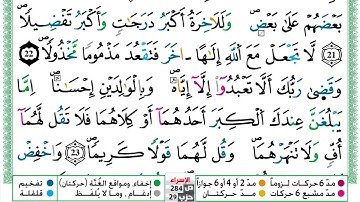 بَعْضَهُمْ عَلَىٰ بَعْضٍ ۚ وَلَلْآخِرَةُ أَكْبَرُ دَرَجَٰتٍ وَأَكْبَرُ تَفْضِيلًا
21 لَّا تَجْعَلْ مَعَ ٱللَّهِ إِلَٰهًا ءَاخَرَ فَتَقْعُدَ مَذْمُومًا مَّخْذُولًا 22
وَقَضَىٰ رَبُّكَ أَلَّا تَعْبُدُوٓا۟ إِلَّآ إِيَّاهُ وَبِٱلْوَٰلِدَيْنِ إِحْسَٰنًا ۚ إِمَّا
يَبْلُغَنَّ عِندَكَ ٱلْكِبَرَ أَحَدُهُمَآ أَوْ كِلَاهُمَا فَلَا تَقُل لَّهُمَآ
أُفٍّ وَلَا تَنْهَرْهُمَا وَقُل لَّهُمَا قَوْلًا كَرِيمًا 23 وَٱخْفِضْ
مدّ 6 حركات لزوماً مدّ 2 أو 4 أو 6 جوازاً الإسراء ص 284 حزب 29 إخفاء، ومواقع الغُنَّة (حركتان) تفخيم
مدّ مشبع 6 حركات مدّ حركتان إدغام، وما لا يُلفَظ قلقلة